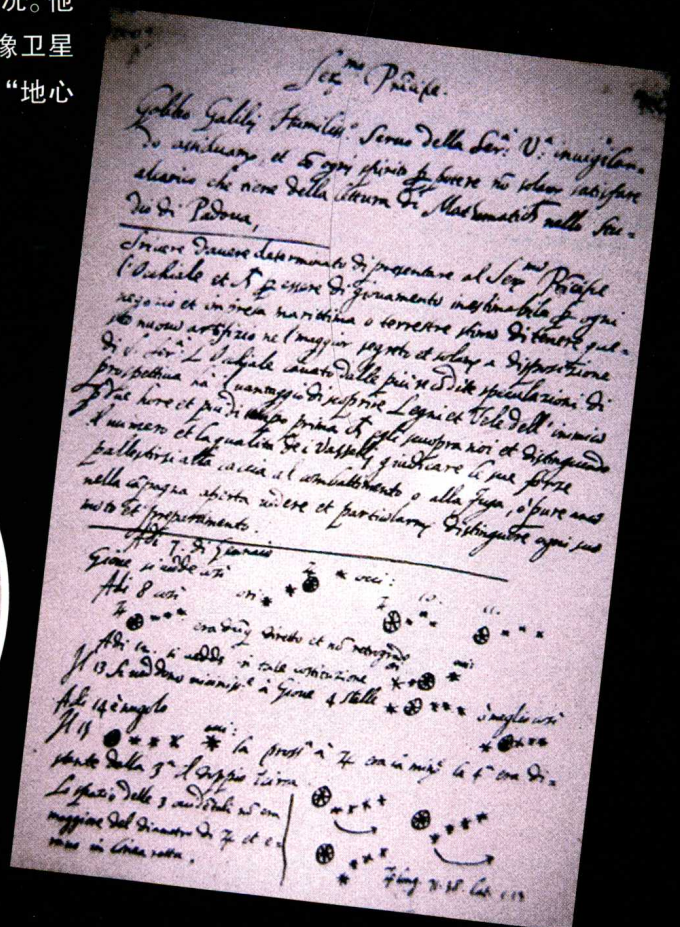 况。他
像卫星
“地心
Ser.mo Prīcipe.
Galileo Galilej Humiliss.o Servo della Ser.a V.a invigilan-
do assiduamẽ, et cõ ogni spirito ꝑ potere nõ solam satisfare
alcarico che tiene della lettura di Mathematich nello Stu-
dio di Padova,
Scrivere davere determinato di presentare al Ser.mo Prīcipe
l'Occhiale et ꝑ essere di giovamento inestimabile ꝑ ogni
negozio et impresa marittima o terrestre stimo di tenere que-
sto nuovo artifizio ne l maggior segreto et solam a disposizione
di S. Ser.a L Occhiale cavato dalle piu recõdite speculazioni di
prospettiva ha vantaggio di scoprire Legni et Vele dell' inimico
ꝑ due hore et piu di tempo prima egli scuopra noi et distinguendo
il numero et la qualita de i Vasselli giudicare le sue forze
pallestirsi alla caccia al combattimento o alla fuga, o pure anco
nella cãpagna aperta vedere et particularmẽ distinguere ogni suo
moto et preparamento.
Adi 7. di Gennaio
Gione si vede cosi occ:
Adi 8 cosi ori 10. 11.
♃ era dũq diretto et nõ retrogrado
Adi 12. si vedde in tale costituzione
Il 13 si veddono à Gione 4 stelle ò meglio cosi
Adi 14 è nugolo
Il 15 la pross.a à ♃ era la mĩ.e la 4.a era di-
stante dalla 3.a il doppio Ĩcirca
Lo spazio delle 3 occidẽtali nõ era
maggiore del diametro di ♃ et e-
rano in linea retta.
♃ long. 71. 38. Lat. 1. 13